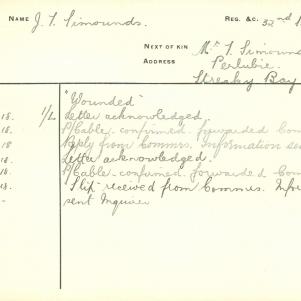 NAME J. T. Simounds. REG. &C. 32nd
NEXT OF KIN Mr T. Simound
ADDRESS Perlubie.
Streaky Bay
"Wounded"
18. 1/L Letter acknowledged.
18. P/Cable confirmed. forwarded Com
18 Reply from Commrs. Information se
18. Letter acknowledged.
18. P/Cable confirmed. forwarded Com
18. Slip received from Commrs. Infor
- sent Inquirer